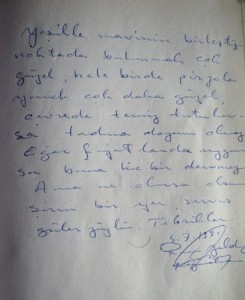 Yeşille mavinin birleştiği
noktada bulunmak çok
güzel, hele birde pirzola
yemek çok daha güzel,
çevrede temiz tutulur-
sa tadına doyum olmaz
Eğer fiyatlarda uygun
sa buna hiç bir
Ama ne olursa olsun
şirin bir yer servis
güler yüzlü. Tebrikler
7.1991